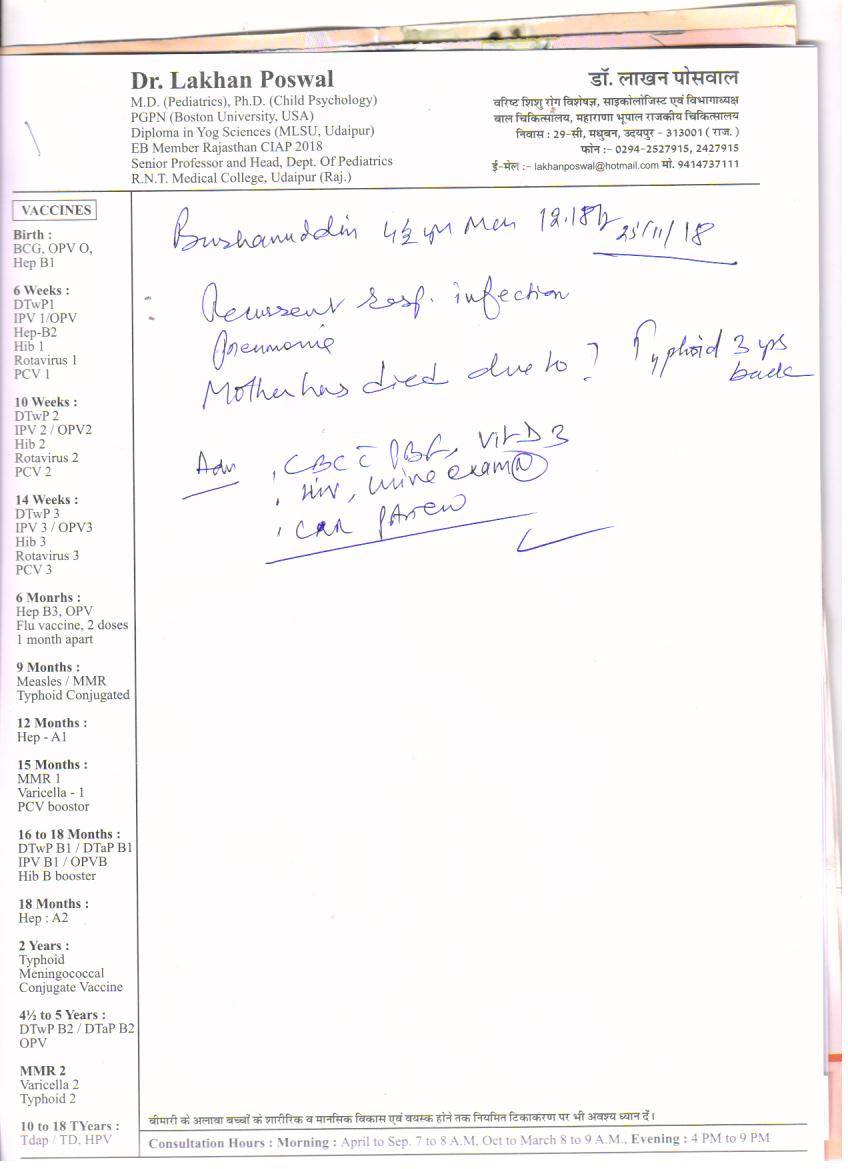 Dr. Lakhan Poswal
M.D. (Pediatrics), Ph.D. (Child Psychology)
PGPN (Boston University, USA)
Diploma in Yog Sciences (MLSU, Udaipur)
EB Member Rajasthan CIAP 2018
Senior Professor and Head, Dept. Of Pediatrics
R.N.T. Medical College, Udaipur (Raj.)
डॉ. लाखन पोसवाल
वरिष्ट शिशु रोग विशेषज्ञ, साइकोलोजिस्ट एवं विभागाध्यक्ष
बाल चिकित्सालय, महाराणा भूपाल राजकीय चिकित्सालय
निवास : 29-सी, मधुबन, उदयपुर - 313001 ( राज. )
फोन :- 0294-2527915, 2427915
ई-मेल :- lakhanposwal@hotmail.com मो. 9414737111
VACCINES
Birth :
BCG, OPV O,
Hep B1
6 Weeks :
DTwP1
IPV 1/OPV
Hep-B2
Hib 1
Rotavirus 1
PCV 1
10 Weeks :
DTwP 2
IPV 2 / OPV2
Hib 2
Rotavirus 2
PCV 2
14 Weeks :
DTwP 3
IPV 3 / OPV3
Hib 3
Rotavirus 3
PCV 3
6 Monrhs :
Hep B3, OPV
Flu vaccine, 2 doses
1 month apart
9 Months :
Measles / MMR
Typhoid Conjugated
12 Months :
Hep - A1
15 Months :
MMR 1
Varicella - 1
PCV boostor
16 to 18 Months :
DTwP B1 / DTaP B1
IPV B1 / OPVB
Hib B booster
18 Months :
Hep : A2
2 Years :
Typhoid
Meningococcal
Conjugate Vaccine
4½ to 5 Years :
DTwP B2 / DTaP B2
OPV
MMR 2
Varicella 2
Typhoid 2
10 to 18 TYears :
Tdap / TD, HPV
Burhanuddin 4½ yr 25/11/18
Recurrent resp. infection
Pneumonia
Mother has died due to ? Typhoid 3 yrs back
Adv , CBC c̄ PBF, Vit D3
, HIV, Urine exam (N)
,
बीमारी के अलावा बच्चों के शारीरिक व मानसिक विकास एवं वयस्क होने तक नियमित टिकाकरण पर भी अवश्य ध्यान दें।
Consultation Hours : Morning : April to Sep. 7 to 8 A.M, Oct to March 8 to 9 A.M., Evening : 4 PM to 9 PM